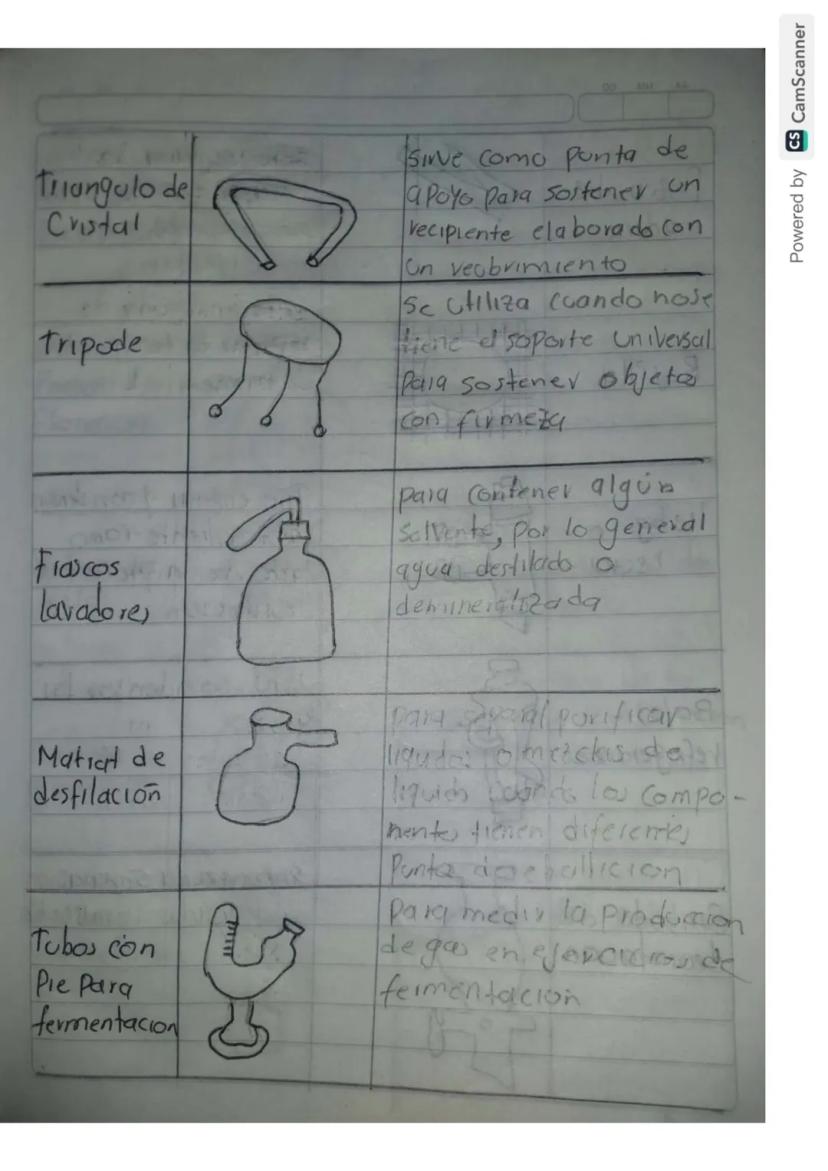 Triangulo de
Cristal
sirve como punta de
apoyo para sostener un
recipiente elaborado con
un recubrimiento
Tripode
se utiliza cuando no se
tiene el soporte universal
para sostener objetos
con firmeza
Frascos
lavadores
para contener algún
Solvente, por lo general
agua destilado o
demineralizada
Matraz de
desfilación
Para separar purificar
liquidos o mezclas de
liquidos cuando los compo-
nentes tienen diferentes
Puntos de ebullicion
Tubos con
Pie Para
fermentacion
Para medir la Produccion
de gas en ejercicios de
fermentación
Powered by CS CamScanner